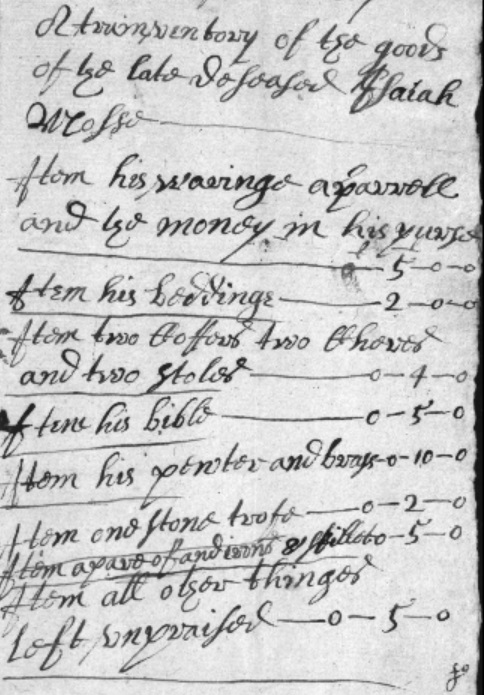 A trūinventory of the goods
of the late deseased Isaiah
Mosse
Item his wearinge aparrell
and the money in his purse
5-0-0
Item his beddinge 2-0-0
Item two Coffers two Cheres
and two stoles 0-4-0
Item his bible 0-5-0
Item his pewter and brass 0-10-0
Item one stone trofe 0-2-0
Item a pare of andirons & 0-5-0
Item all other thinges
left unpraised 0-5-0